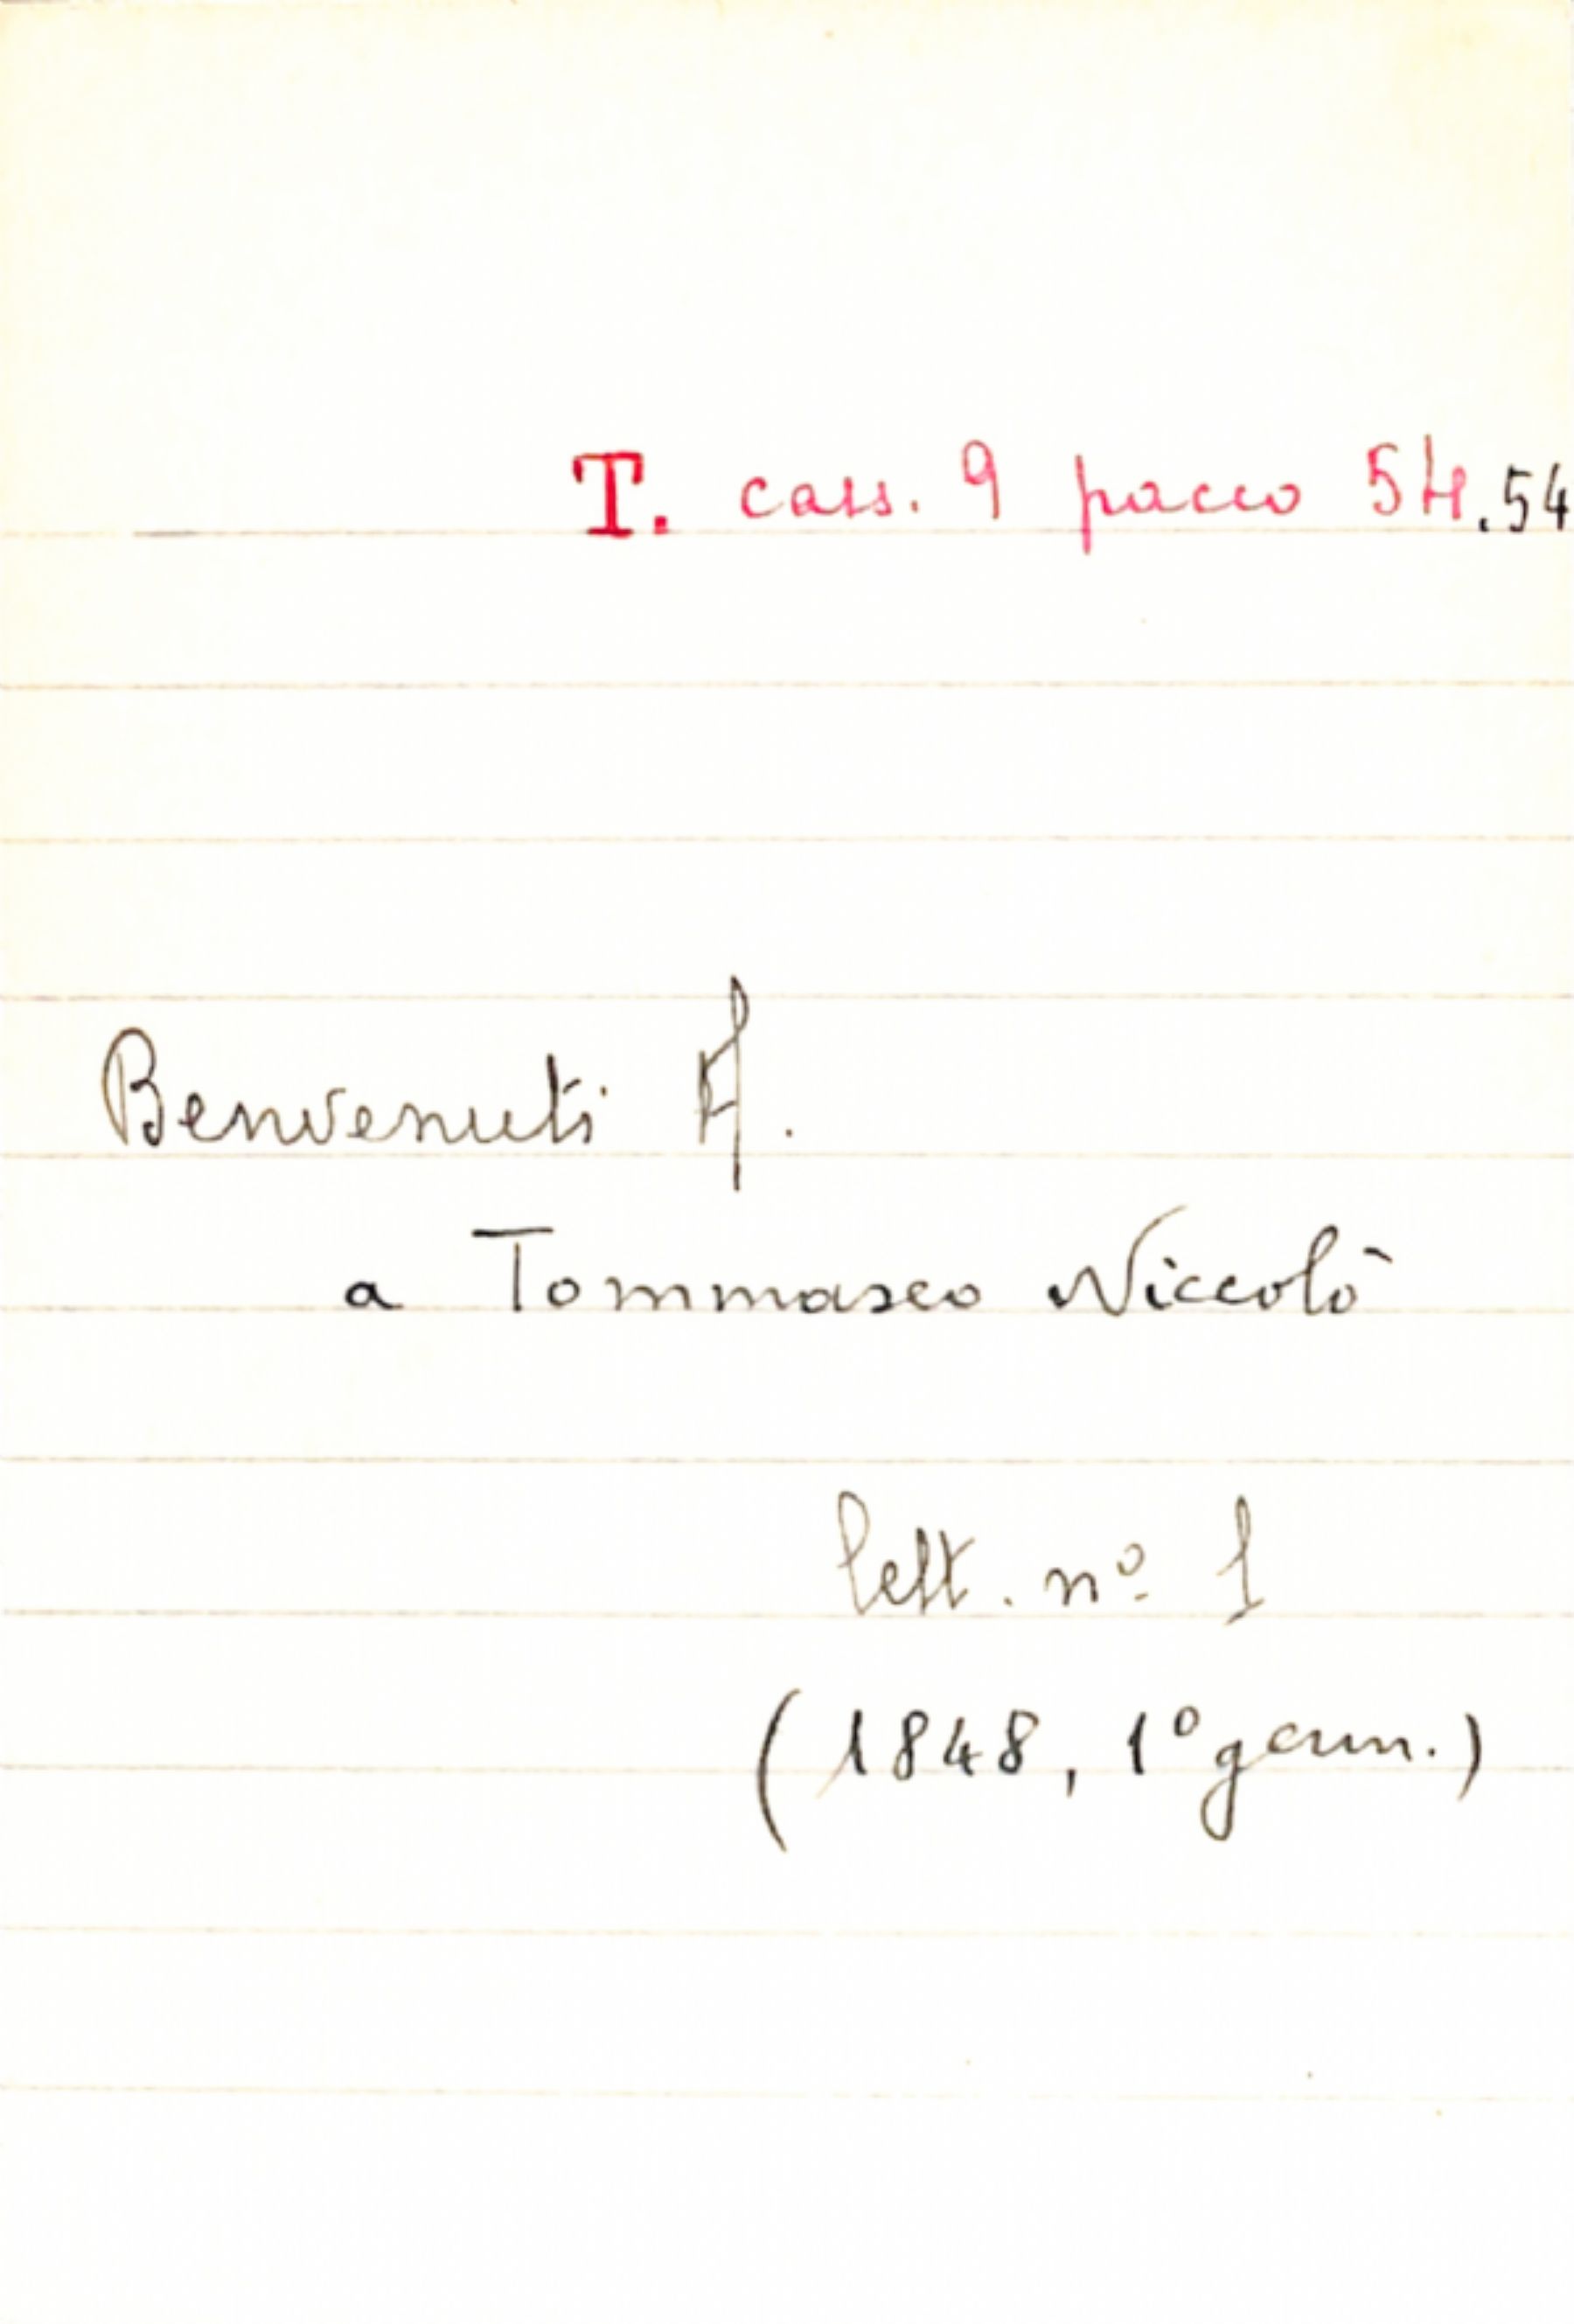 T. cass. 9 pacco 54.54
Benvenuti A.
a Tommaseo Niccolò
lett. nº 1
(1848, 1º genn.)